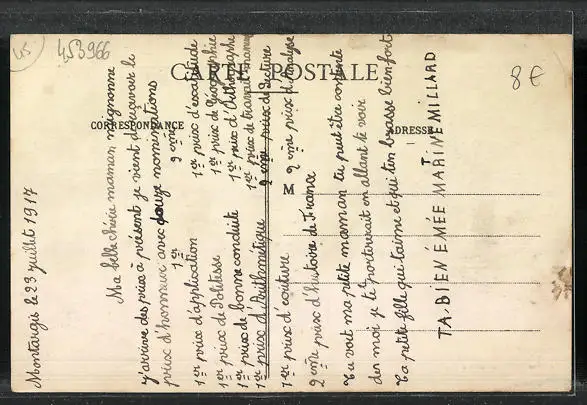 45 453966
8€
CARTE POSTALE
CORRESPONDANCE
ADRESSE
M
Montargis le 23 juillet 1917
Ma belle chérie maman mignonne
j'arrive des prix à présent je vient d'reçevoir le
prix d'honneur avec douze nominations
1er 2ème
1er prix d'application 1er prix d'exactitude
1er prix de Politesse 1er prix de Géographie
1er prix de bonne conduite 1er prix d'Orthographe
1er prix d'Arithmétique 1er prix de travail manuel
2ème prix de Lecture
1er prix d'écriture 2ème prix d'Analyse
2ème prix d'histoire de France
Tu voit ma petite maman tu peut être contente
de moi je te porterait en allant te voir
Ta petite fille qui t'aime et qui t'embrasse bien fort
TA.BIEN ÉMÉE MARTINE MILLARD